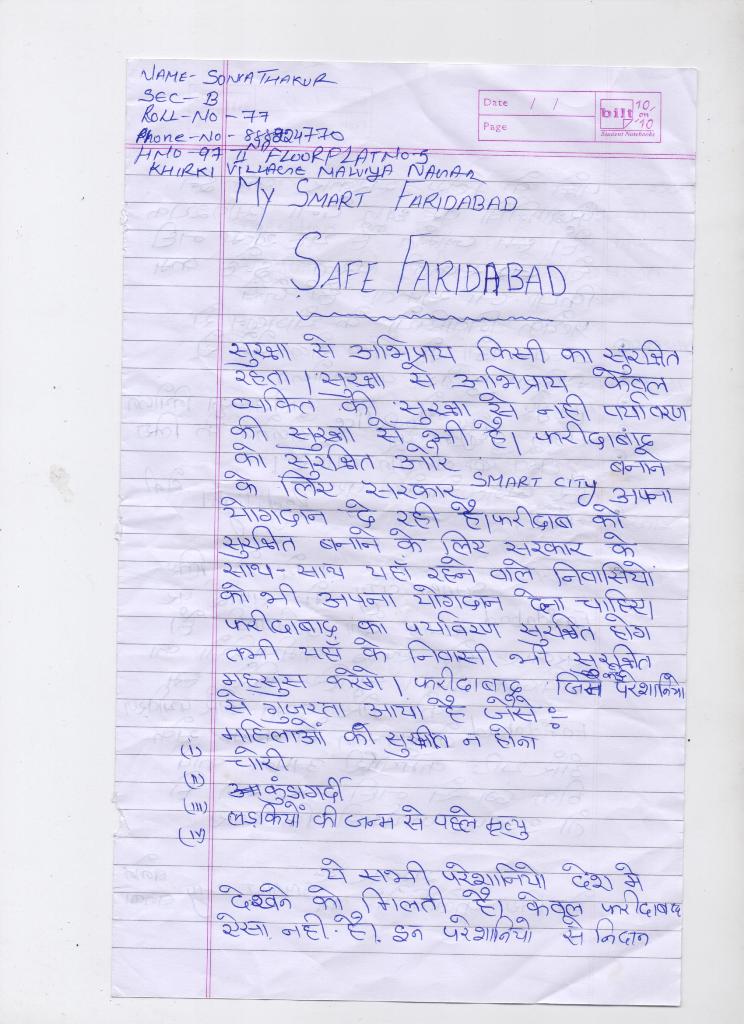 NAME- SONIA THAKUR
SEC- B
ROLL-NO - 77
Phone-No -
HNO-97 II ND FLOOR FLAT NO-5
KHIRKI VILLAGE MALVIYA NAGAR
Date / /
Page
bilt
Student Notebooks
10/ on 10
MY SMART FARIDABAD
SAFE FARIDABAD
सुरक्षा से अभिप्राय किसी का सुरक्षित
रहता । सुरक्षा से अभिप्राय केवल
व्यक्ति की सुरक्षा से नही पर्यावरण
की सुरक्षा से भी है। फरीदाबाद
को सुरक्षित और बनाने
के लिए सरकार SMART CITY अपना
योगदान दे रही है। फरीदाब को
सुरक्षित बनाने के लिए सरकार के
साथ-साथ यहाँ रहने वाले निवासियो
को भी अपना योगदान देना चाहिए।
फरीदाबाद का पर्यावरण सुरक्षित होग
तभी यहाँ के निवासी भी सुरक्षित
महसुस करेगे। फरीदाबाद जिन परेशानियो
से गुजरता आया है जैसे :-
(i) महिलाओं की सुरक्षीत न होना
(ii) चोरी
(iii) गुंडागर्दी
(iv) लड़कियों की जन्म से पहले मृत्यु
ये सभी परेशानियो देश मे
देखने को मिलती है। केवल फरीदाबाद
ऐसा नही है। इन परेशानियो से निदान